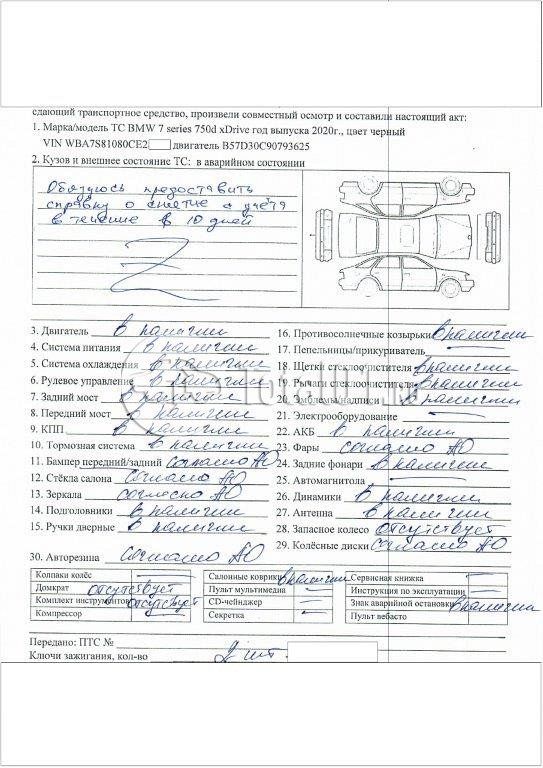 сдающий транспортное средство, произвели совместный осмотр и составили настоящий акт:
1. Марка/модель ТС BMW 7 series 750d xDrive год выпуска 2020г., цвет черный
VIN WBA7S81080CE2 двигатель B57D30C90793625
2. Кузов и внешнее состояние ТС: в аварийном состоянии
Обязуюсь предоставить
справку о снятие с учёта
в течение в 10 дней
3. Двигатель в наличии
4. Система питания в наличии
5. Система охлаждения в наличии
6. Рулевое управление в наличии
7. Задний мост в наличии
8. Передний мост в наличии
9. КПП в наличии
10. Тормозная система в наличии
11. Бампер передний/задний согласно АО
12. Стёкла салона согласно АО
13. Зеркала согласно АО
14. Подголовники в наличии
15. Ручки дверные в наличии
16. Противосолнечные козырьки в наличии
17. Пепельницы/прикуриватель —
18. Щетки стеклоочистителя в наличии
19. Рычаги стеклоочистителя в наличии
20. Эмблемы/надписи в наличии
21. Электрооборудование —
22. АКБ в наличии
23. Фары согласно АО
24. Задние фонари в наличии
25. Автомагнитола —
26. Динамики в наличии
27. Антенна в наличии
28. Запасное колесо отсутствует
29. Колёсные диски согласно АО
30. Авторезина согласно АО
Колпаки колёс — Салонные коврики в наличии Сервисная книжка —
Домкрат отсутствует Пульт мультимедиа — Инструкция по эксплуатации —
Комплект инструментов отсутствует CD-чейнджер — Знак аварийной остановки в наличии
Компрессор — Секретка — Пульт вебасто
Передано: ПТС №
Ключи зажигания, кол-во 2 шт.